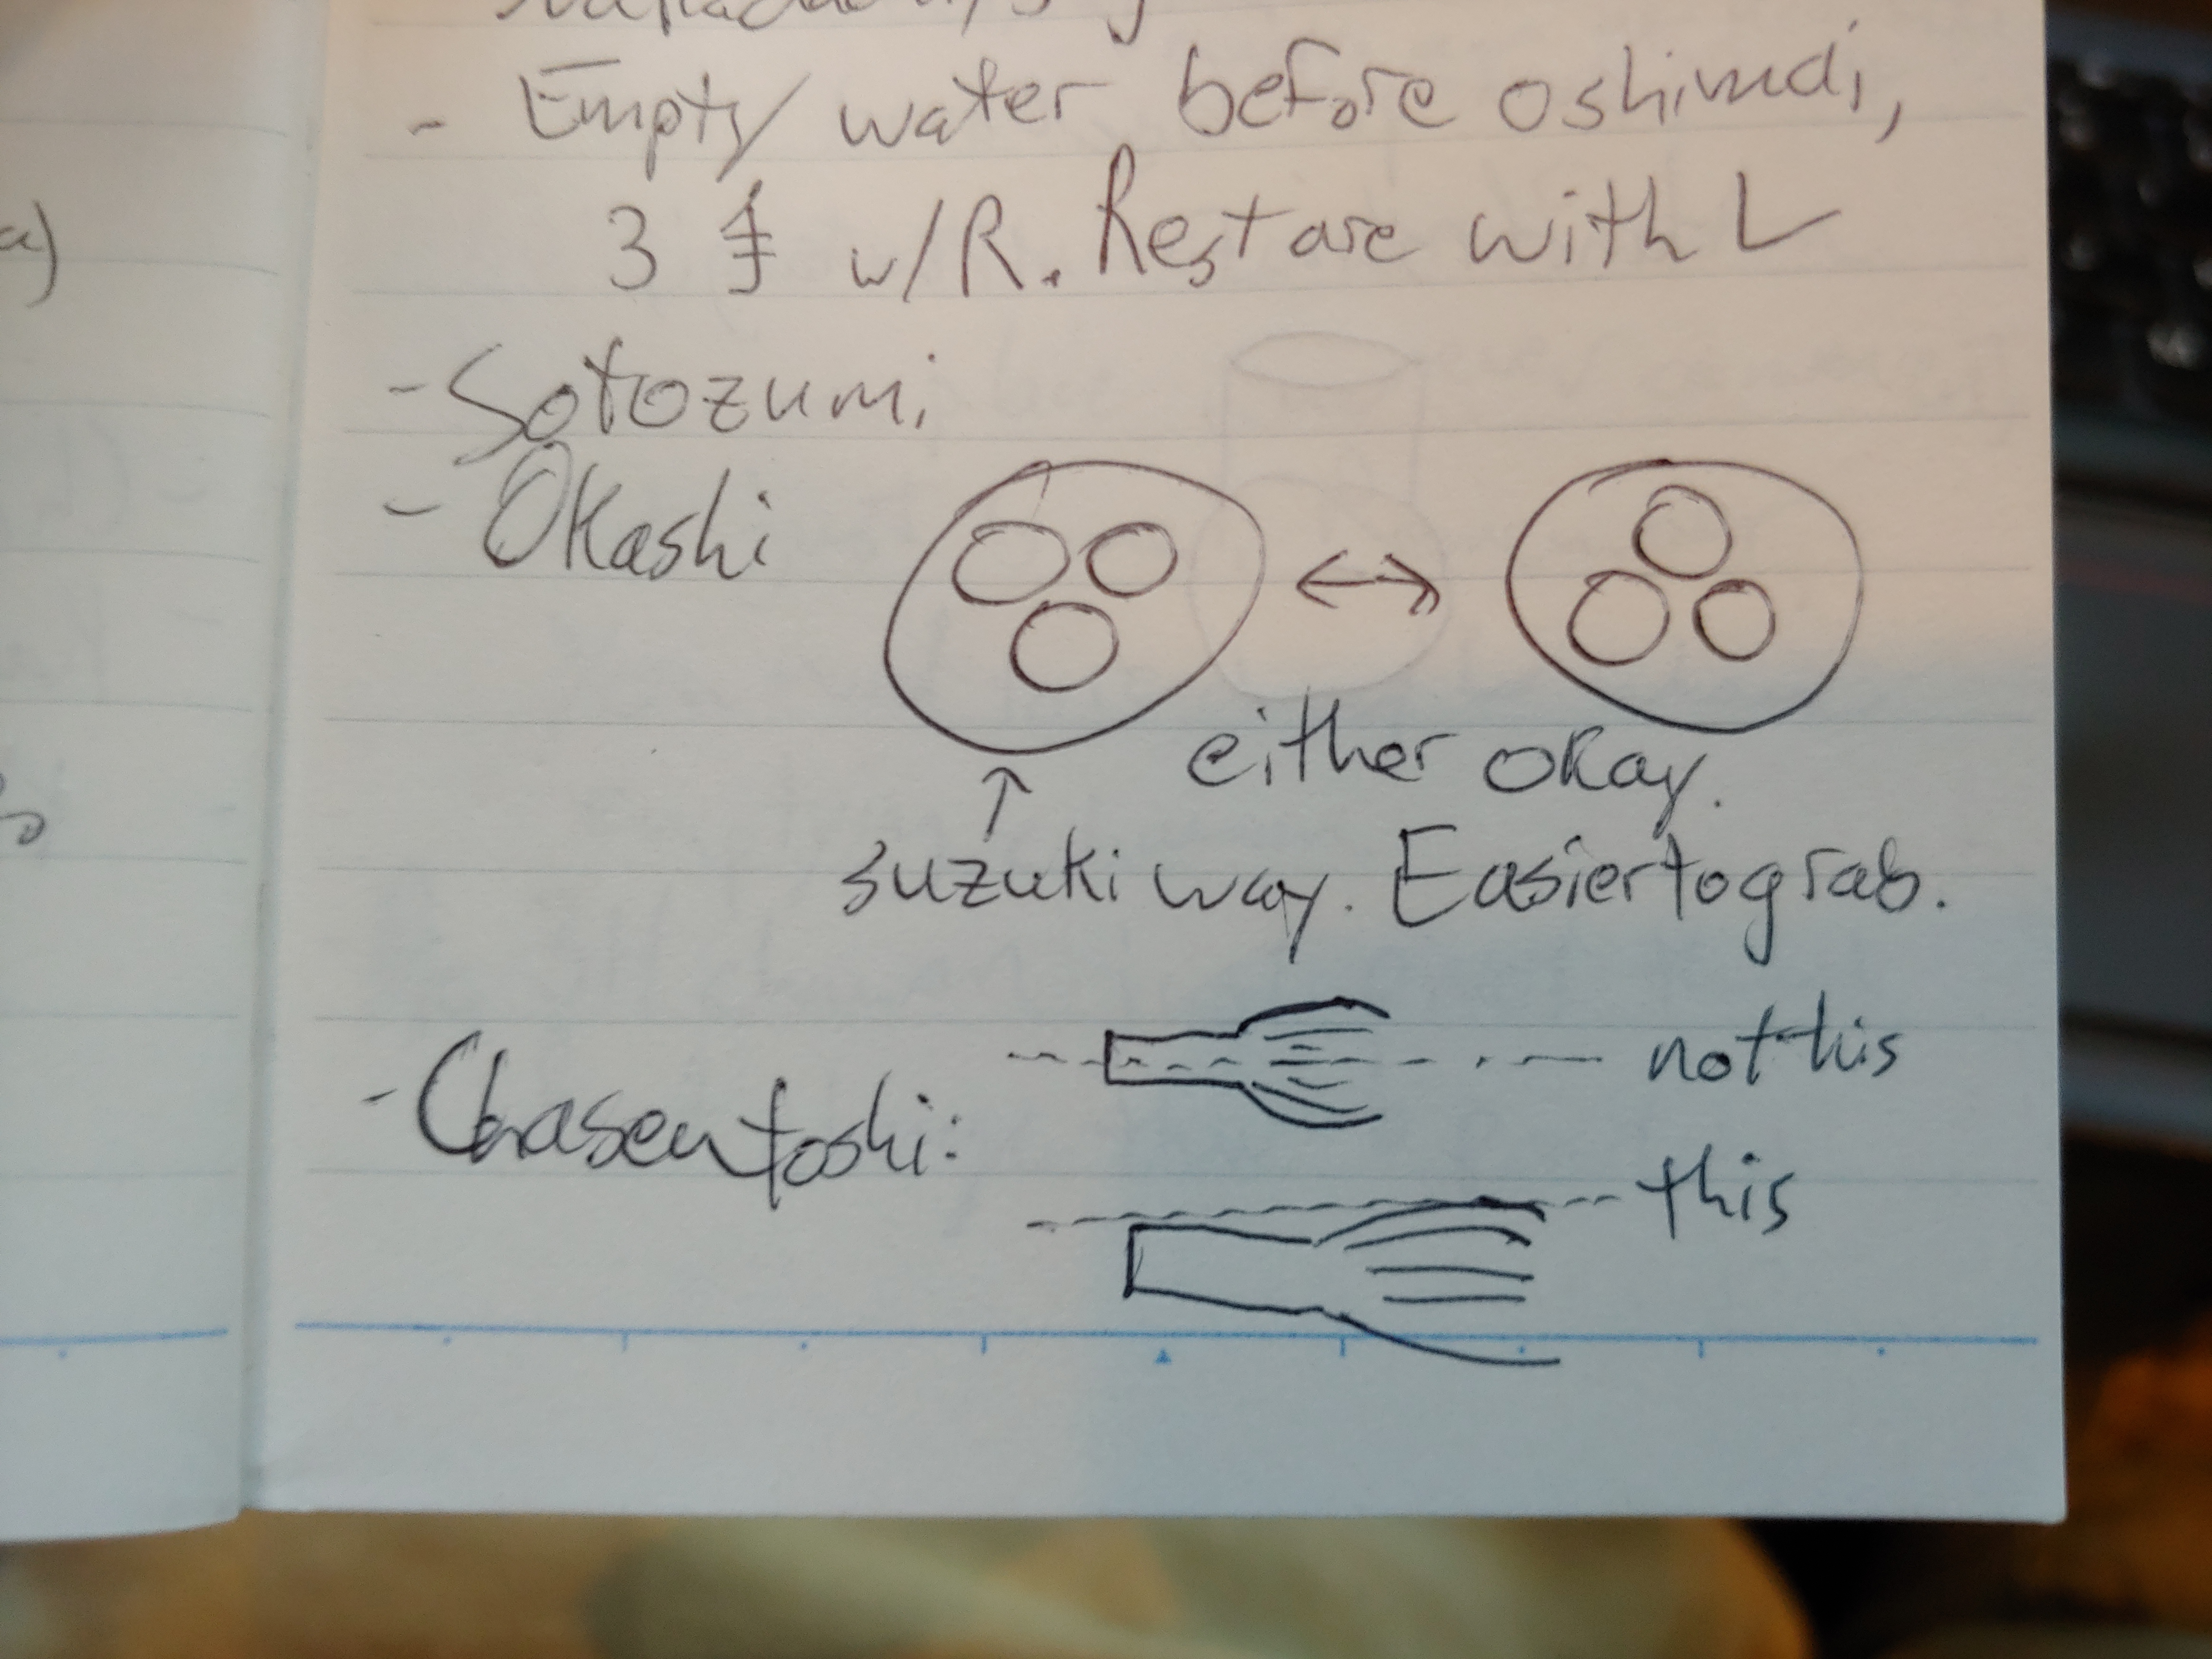 - Empty water before oshimai,
3 手 w/R. Restore with L
- Sotozumi
- Okashi
either okay.
suzuki way. Easier to grab.
- Chasentoshi:
not this
this
a)